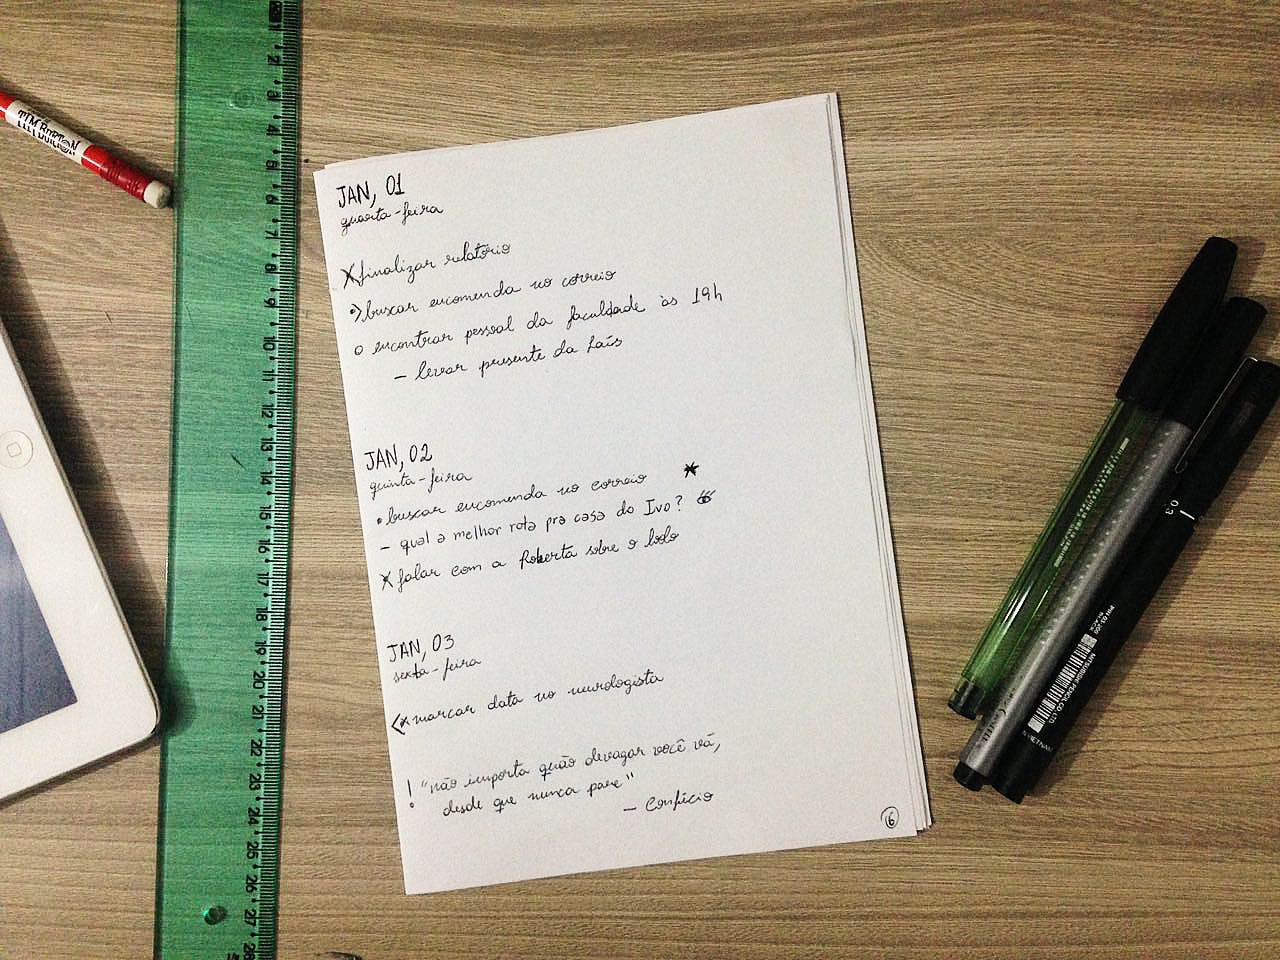 JAN, 01
quarta-feira
X finalizar relatório
•> buscar encomenda no correio
o encontrar pessoal da faculdade às 19h
– levar presente da Laís
JAN, 02
quinta-feira
• buscar encomenda no correio *
– qual a melhor rota pra casa do Ivo?
X falar com a Roberta sobre o bolo
JAN, 03
sexta-feira
<x marcar data no neurologista
! "não importa quão devagar você vá,
desde que nunca pare"
– Confúcio
16
TIM BURTON
1 2 3 4 5 6 7 8 9 10 11 12 13 14 15 16 17 18 19 20 21 22 23 24 25 26 27 28
0.3
PIN 03-200
BLACK
MITSUBISHI PENCIL CO. LTD.
VIETNAM